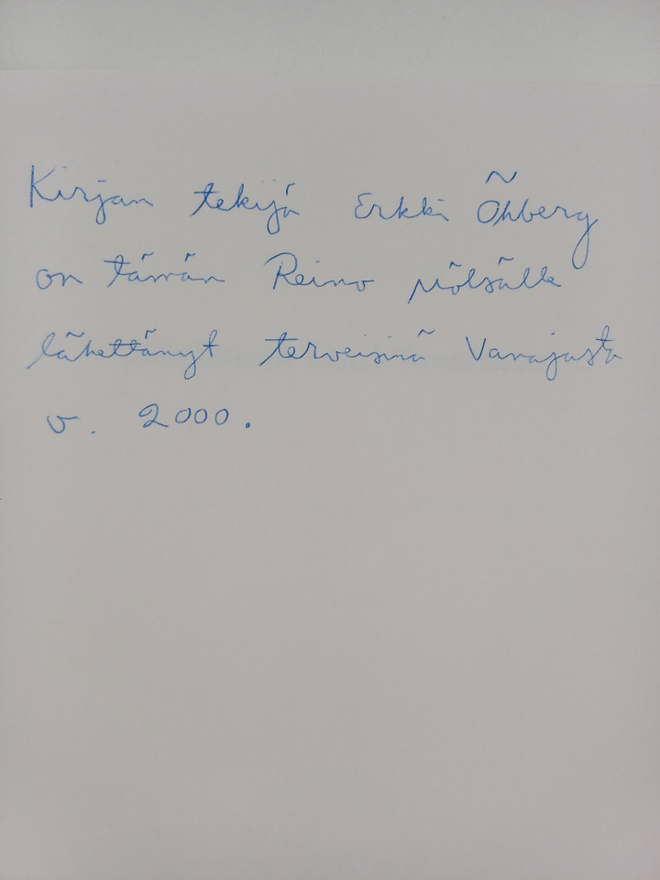 Kirjan tekijä Erkki Öhberg
on tämän Reino Mölsälle
lähettänyt terveisinä Vanajasta
v. 2000.